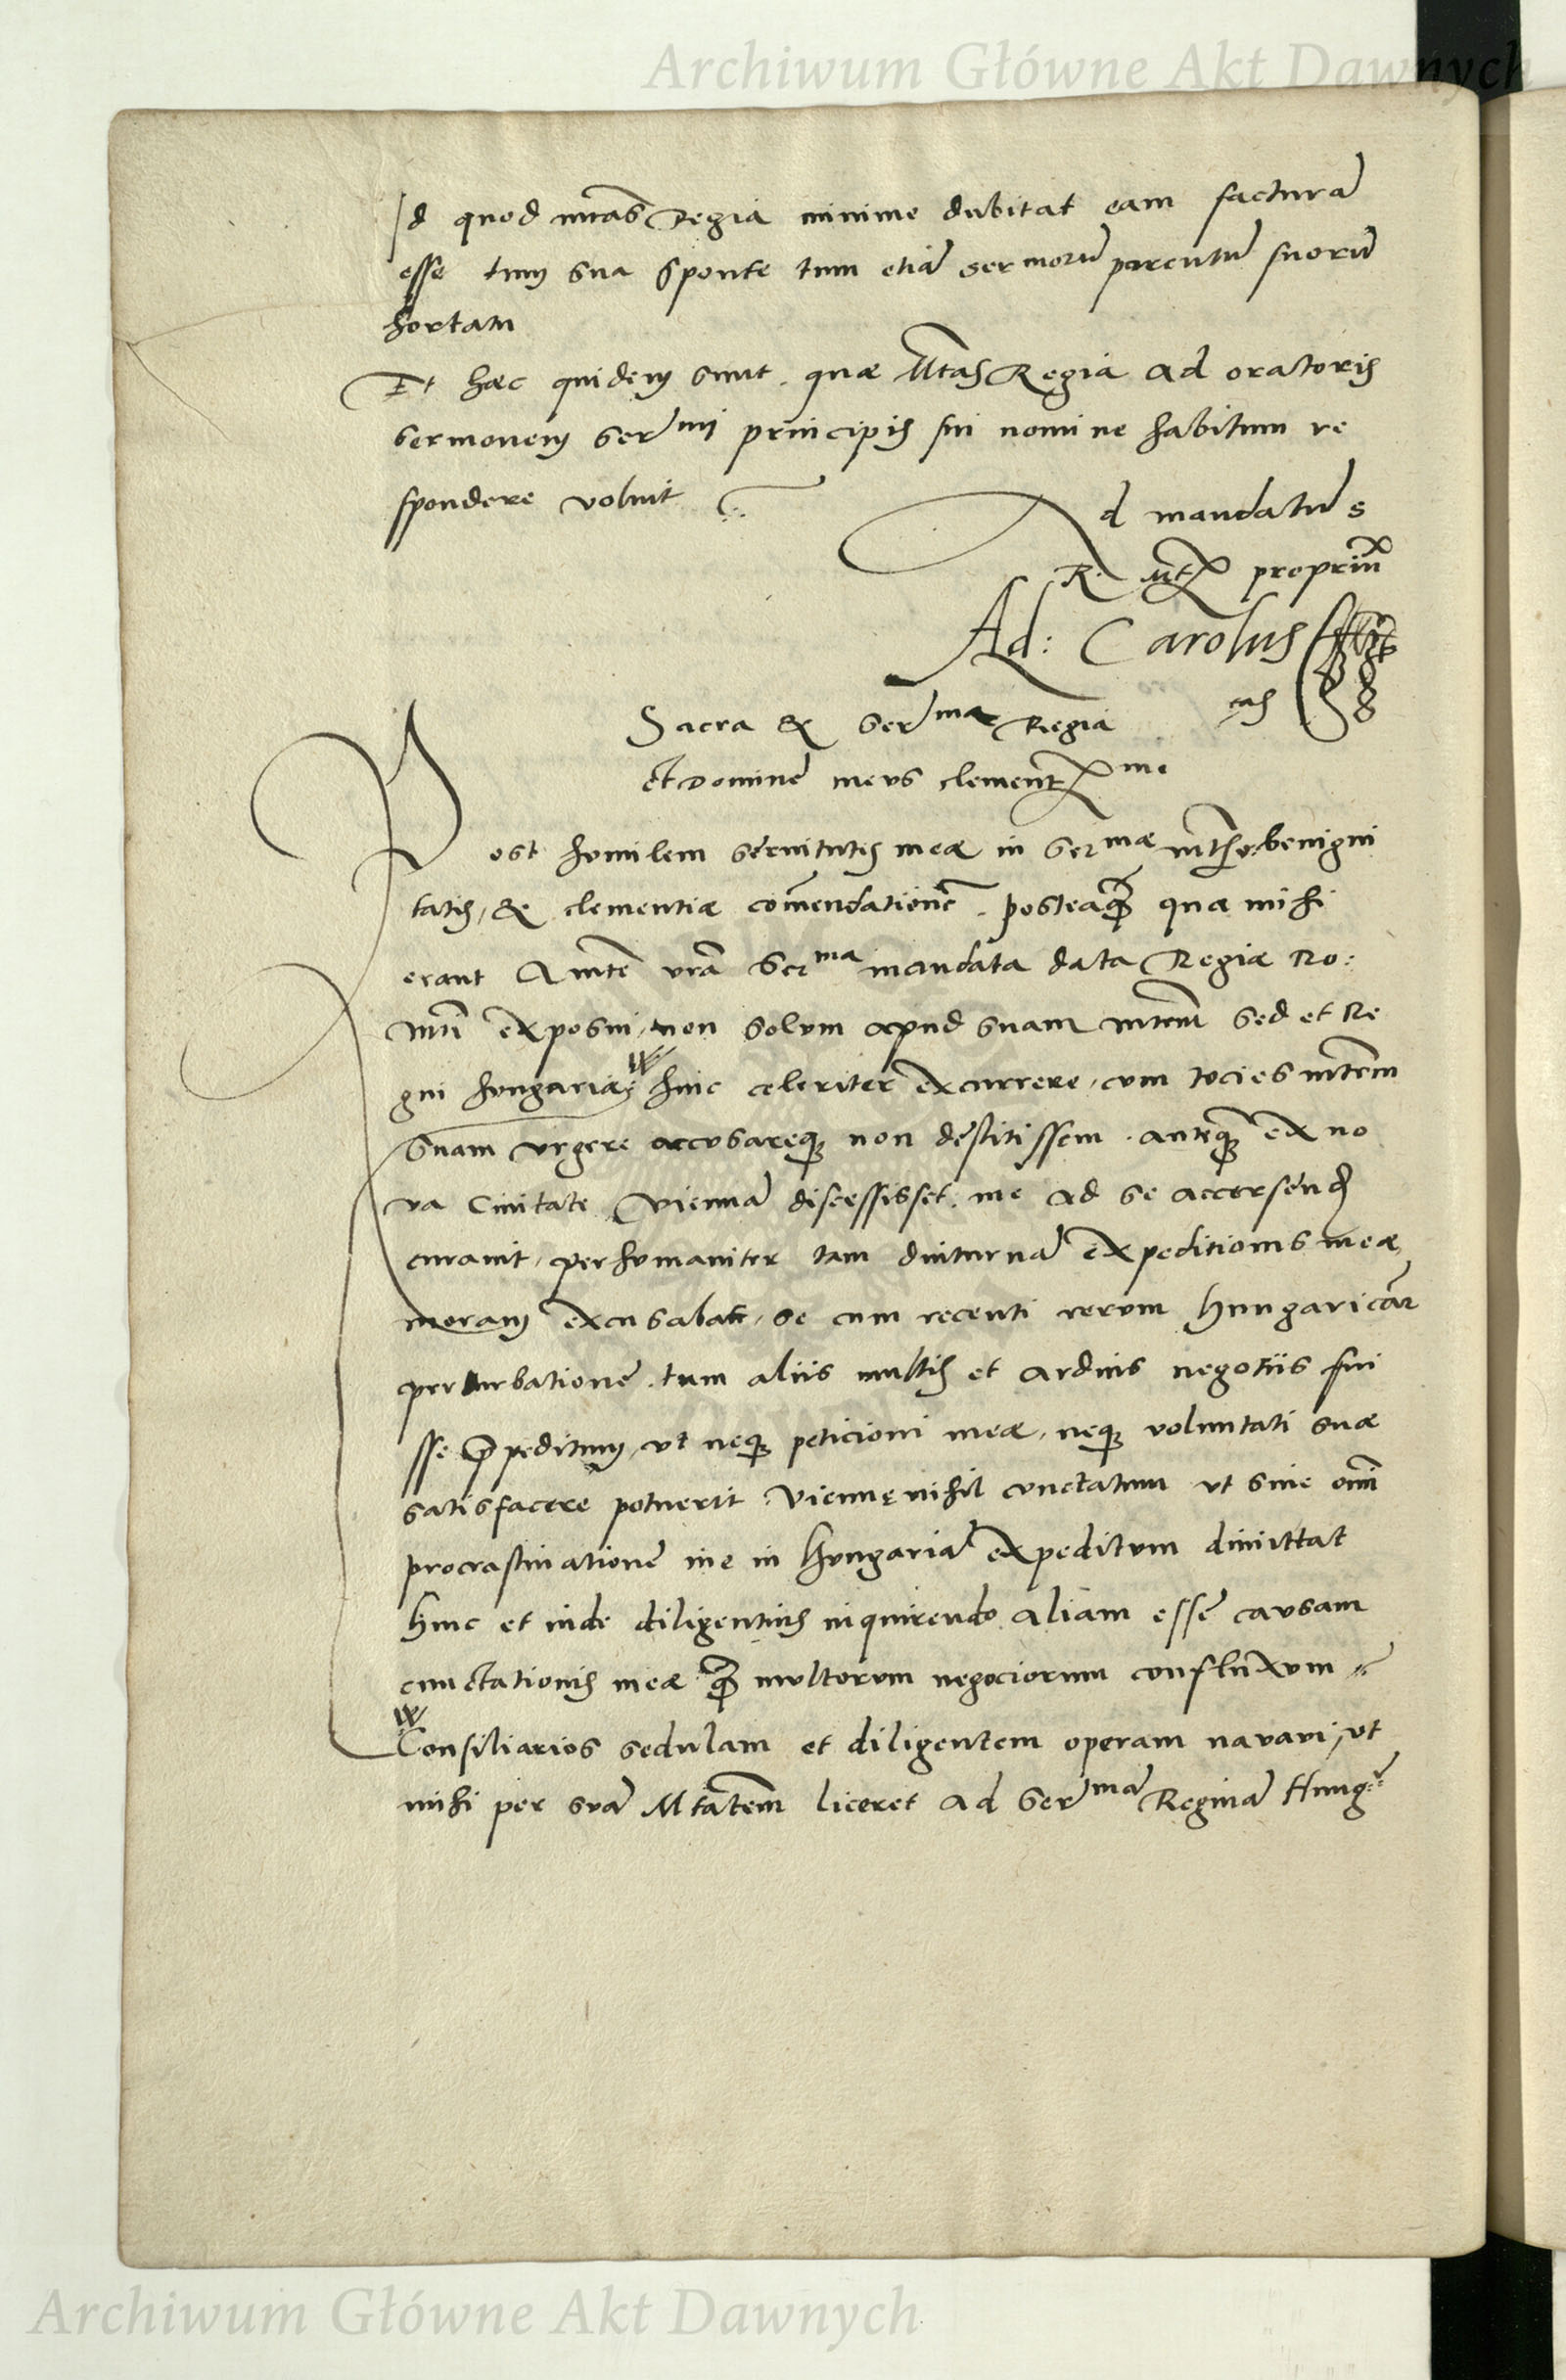 Archiwum Główne Akt Dawnych
Id quod mtas Regia minime dubitat eam facturā
esse tum sua sponte tum etiā sermorū parentū suorū
hortatu
Et hæc quidem sunt quæ Mtas Regia ad oratoris
sermonem sermi principis sui nomine habitum re
spondere voluit
Ad mandatū s
R. Mtis propriū
Ad: Carolus
Sacra & serma Regia
et Domine meus clementme
Post humilem servitutis meæ in sermæ benigni
tatis, & clementiæ comendationē posteaq quæ mihi
erant A mte vra serma mandata data Regiæ Ro:
mti exposui, non solum apud suam mtem sed et Re
gni hungariæ huic celeriter excurrere, cum tocies mtem
suam urgere accusareq non destitissem. anteq ex no
va Civitate Viennā discessisset. me ad se accersend
curavit, perhumaniter tam diuturnā expeditionis meæ
moram excusabat, se cum recenti rerum hungaricar
perturbatione. tum aliis multis et arduis negotiis fui
sse p̄peditum, ut neq peticioni meæ, neq voluntati suæ
satisfacere potuerit. Viennę nihil cunctatum ut sine omi
procrastinatione me in hungariā expeditum dimittat
hinc et inde diligentius inquirendo aliam esse causam
cunctationis meæ q multorum negociorum confluxum
Consiliarios sedulam et diligentem operam navavi, ut
mihi per suā Mtatem liceret ad sermā Reginā Hung
Archiwum Główne Akt Dawnych